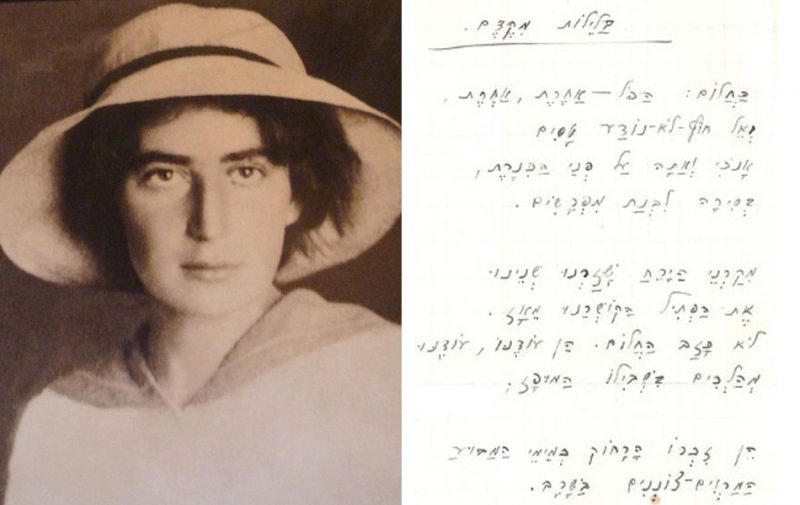 בַּלֵּילוֹת מִקֶּדֶם.
בַּחֲלוֹם: הַכֹּל – אַחֶרֶת, אַחֶרֶת,
וְאֶל חוֹף-לֹא-נוֹדַע טָסִים
אָנֹכִי וְאַתָּה עַל פְּנֵי הַכִּנֶּרֶת,
בְּסִירָה לִבְנַת מִפְרָשִׂים.
מִקַּרְנֵי הַיָּרֵחַ שָׁזַרְנוּ שְׁנֵינוּ
אֶת הַפְּתִיל הַקּוֹשְׁרֵנוּ מֵאָז.
לֹא כָזַב הַחֲלוֹם. הֵן עוֹדֶנּוּ, עוֹדֶנּוּ
מְהַלְּכִים בִּשְׁבִילוֹ הַמּוּפָז;
הֵן זִכְרוֹ הָרָחוֹק כְּמֵימֵי הַמַּבּוּעַ
הַמַּרְוִים-צוֹנְנִים בַּשָּׁרָב.